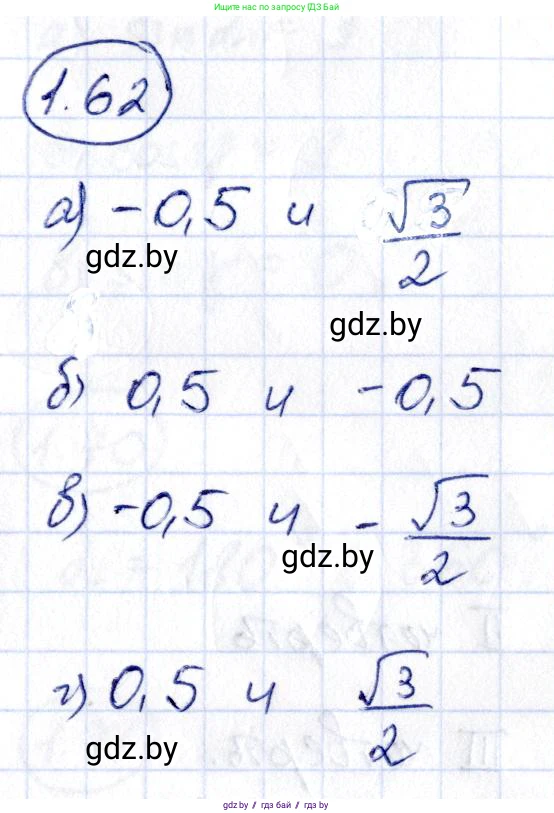 Ищите нас в поисковых системах
по запросу ГДЗ БАЙ
1.62
а) -0,5 и √3/2
gdz.by
gdz.by
б) 0,5 и -0,5
в) -0,5 и -√3/2
gdz.by
г) 0,5 и √3/2
gdz.by
gdz by // гдз бай // гдз by